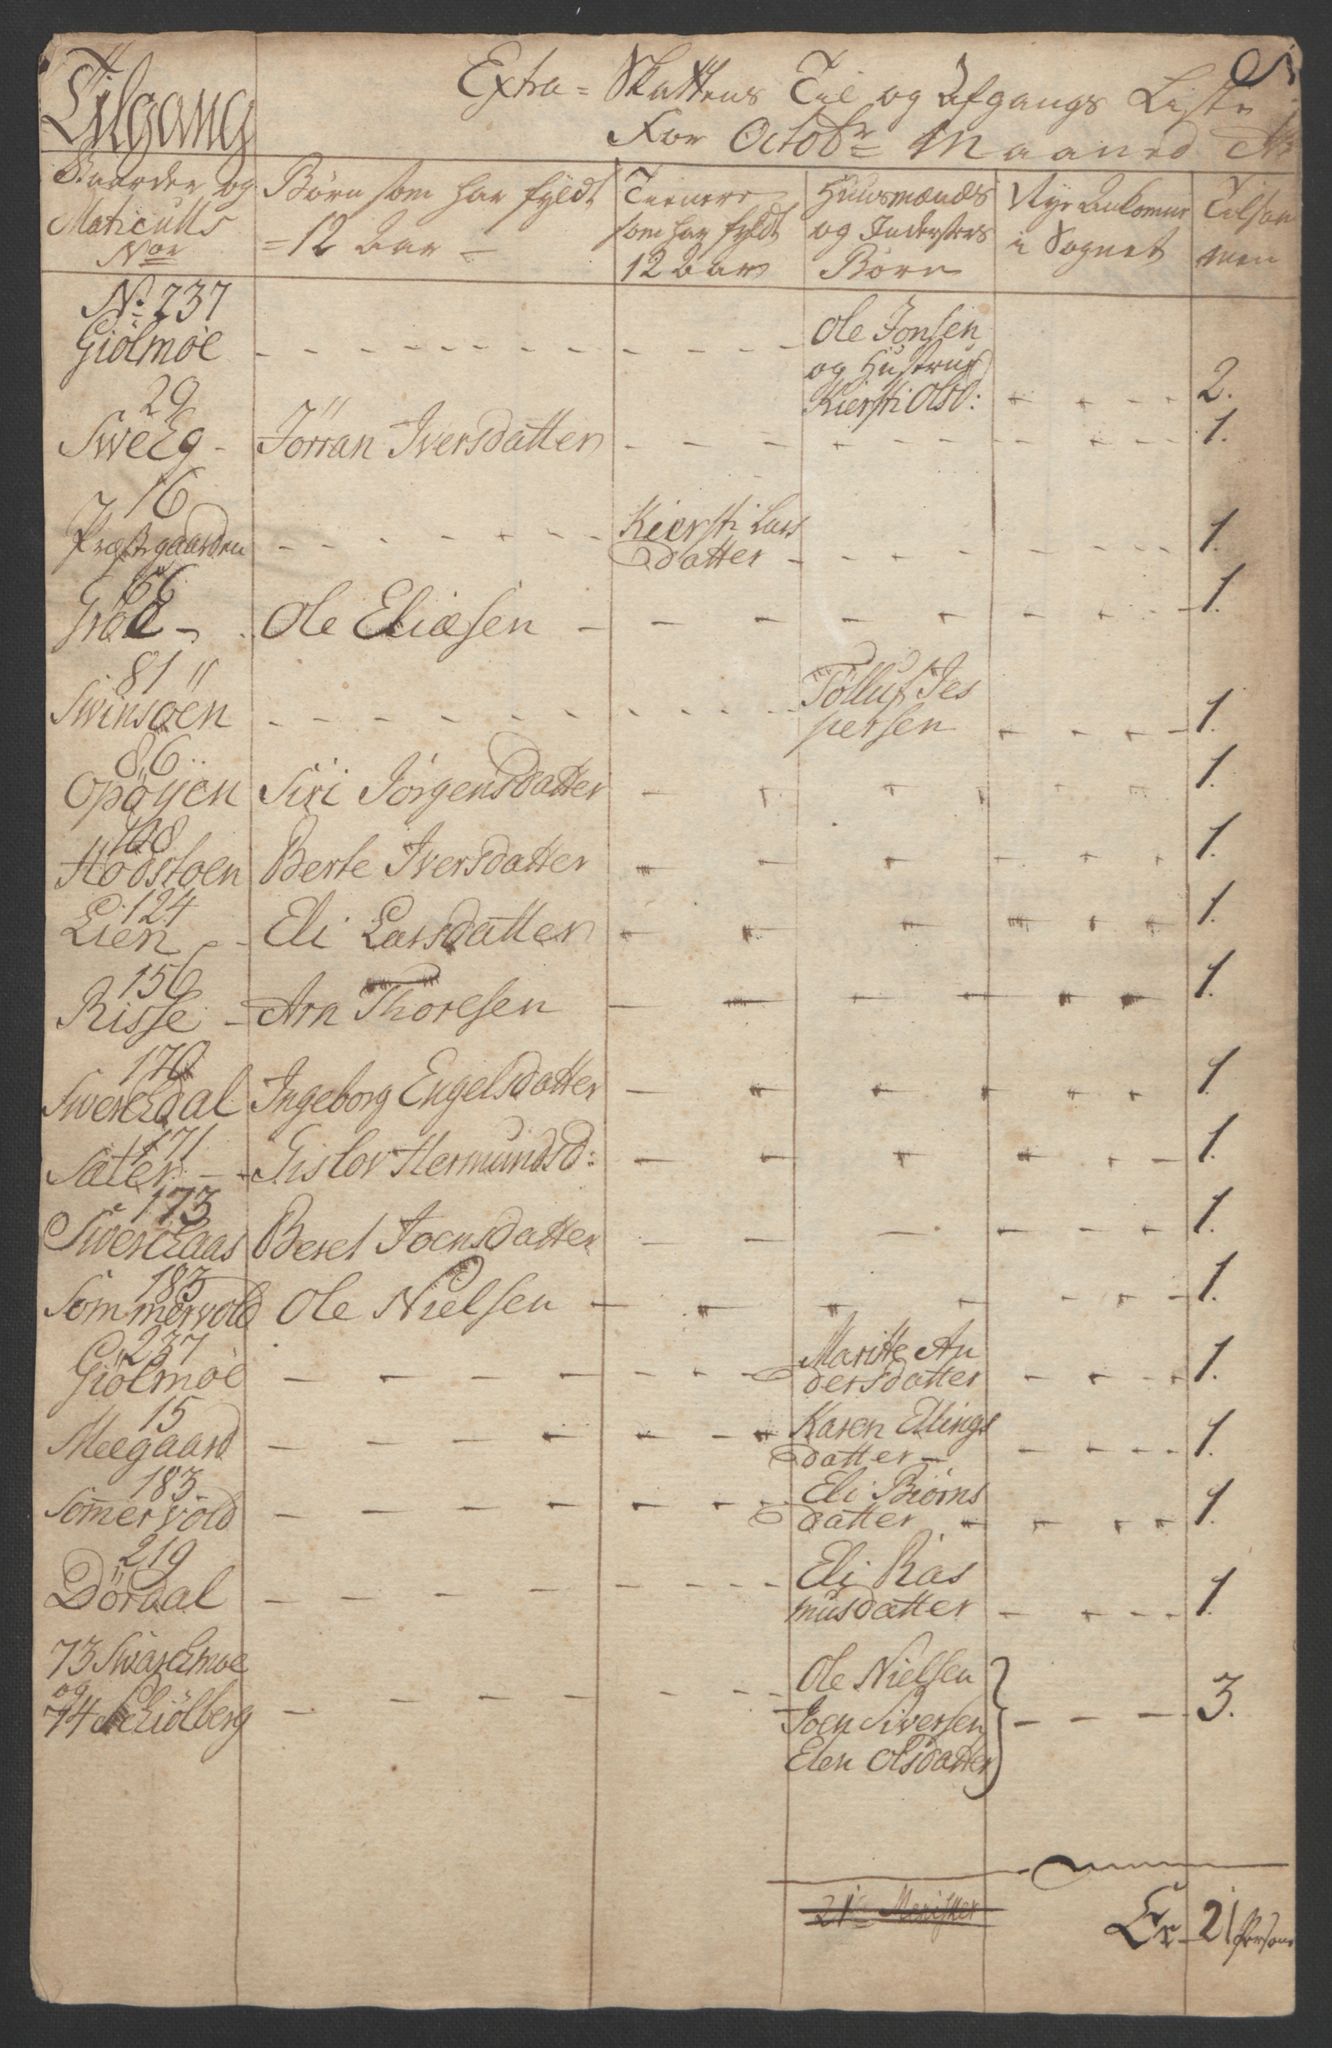 Tilgang
Extra = Skattens Til og Afgangs Liste
For Octobr Maaned
Gaarder og Matriculs Nor
Børn som har fyldt = 12 Aar –
Tienere som har fyldt 12 Aar
Huusmænds og Inderster Børn
Nye Ankomne i Sognet
Tilsammen
No 237
Giölmöe - - - Ole Jonsen
og Hustrue
Kiersti Olsd: - - - 2.
29
Sweeg - Jörran Iversdatter - - - 1.
16
Præstegaarden - - - Kiersti Lars
datter - - - 1.
66
Grøe - Ole Eliæsen - - - 1.
81
Swinsöen - - - Tølluf Jes
persen - - - 1.
86
Opöyen Siri Jörgensdatter - - - 1.
108
Hodstoen Berte Iversdatter - - - 1.
124
Lien - Eli Larsdatter - - - 1.
156
Risse - Arn Thoresen - - - 1.
170
Swerchdal Ingeborg Engelsdatter - - - 1.
171
Sæter - Gislov Hermundsd: - - - 1.
173
Swerchaas Beret Joensdatter - - - 1.
183
Sommervold Ole Nielsen - - - 1.
237
Giölmöe - - - Maritte An
dersdatter - - - 1.
15
Meegaard - - - Karen Ellings
datter - - - 1.
183
Somervold - - - Eli Biörns
datter - - - 1.
219
Dördal - - - Eli Ras
musdatter - - - 1.
73 Swarchmoe Ole Nielsen
og
74 Schiölberg - - - Joen Siversen - - - 3.
Elen Olsdatter
21 Menisker
Er 21 Persone